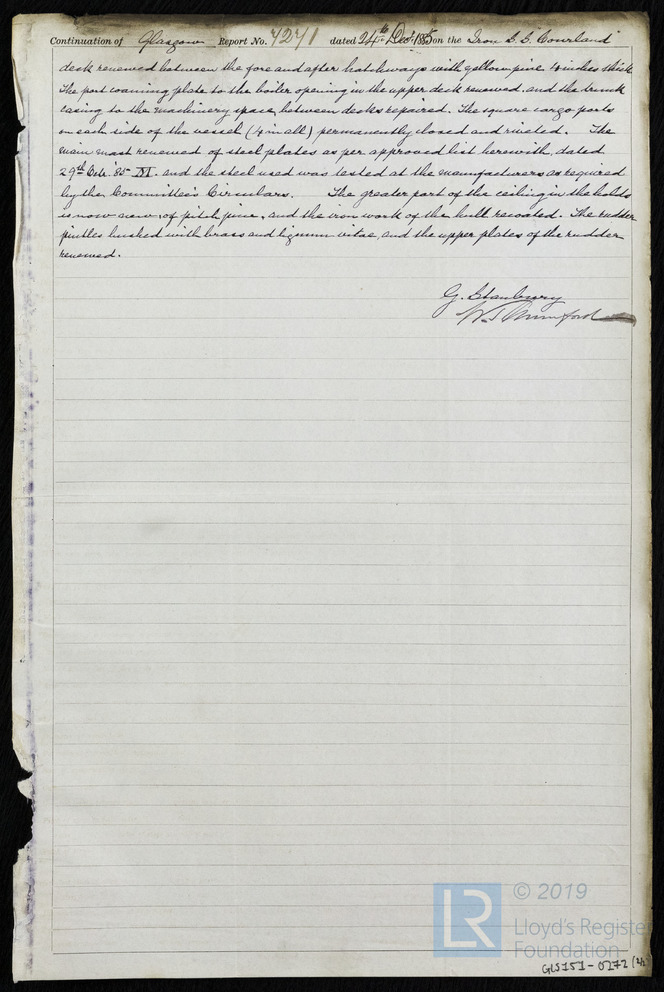 Continuation of Glasgow Report No. 7271 dated 24th Decr 1885 on the Iron S.S. Courland
deck renewed between the fore and after hatchways with yellow pine 4 inches thick.
The port coaming plate to the boiler opening in the upper deck renewed, and the trunk
casing to the machinery space, between decks repaired. The square cargo ports
on each side of the vessel (4 in all) permanently closed and riveted. The
main mast renewed of steel plates as per approved list herewith, dated
29th Octr 85 and the steel used was tested at the manufacturers as required
by the Committee's Circulars. The greater part of the ceiling in the holds
is now new, of pitch pine, and the iron work of the hull recoated. The rudder
pintles bushed with brass and lignum vitae, and the upper plates of the rudder
renewed.
G. Stanbury
W. T. Mumford
LR © 2019
Lloyd's Register
Foundation
GLS151-0272 (2/2)